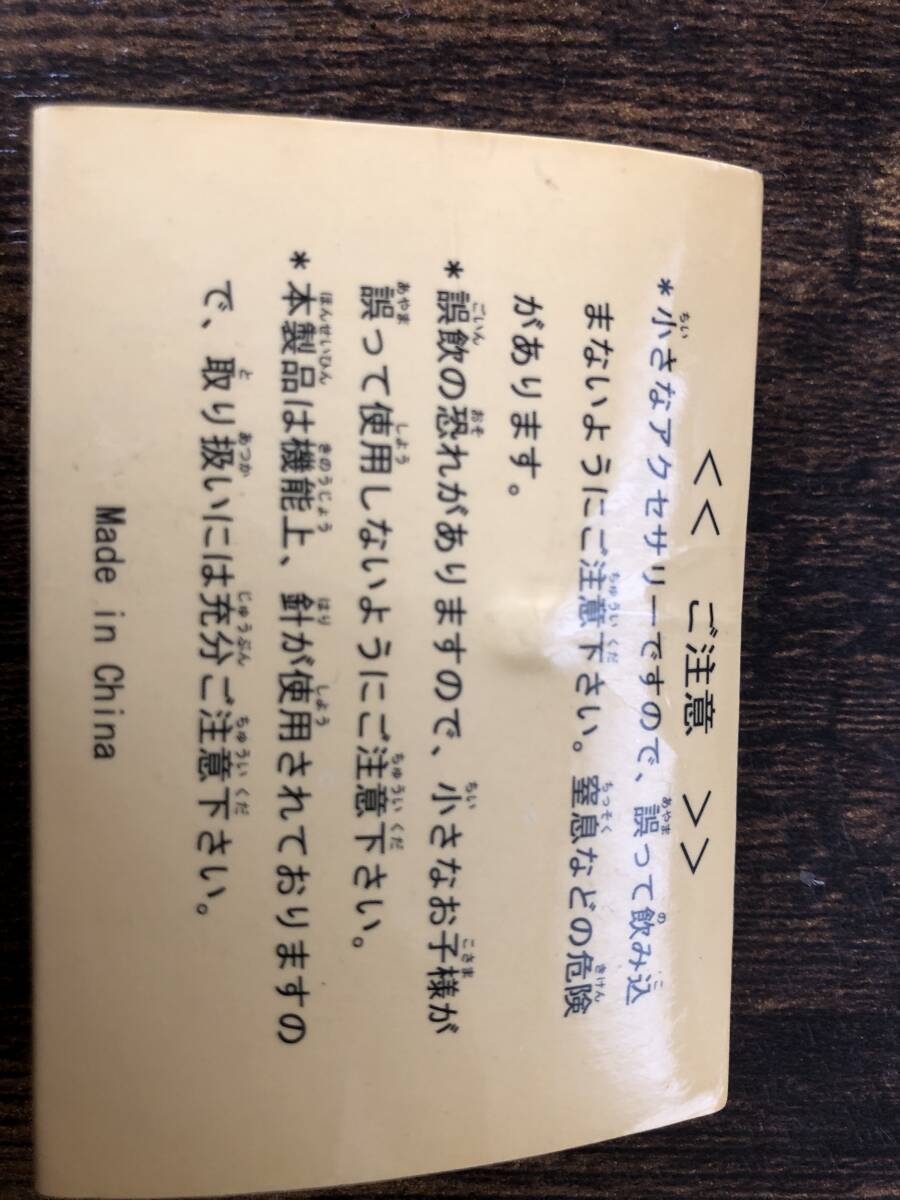 << ご注意 >>
*小さなアクセサリーですので、誤って飲み込
まないようにご注意下さい。窒息などの危険
があります。
*誤飲の恐れがありますので、小さなお子様が
誤って使用しないようにご注意下さい。
*本製品は機能上、針が使用されておりますの
で、取り扱いには充分ご注意下さい。
Made in China